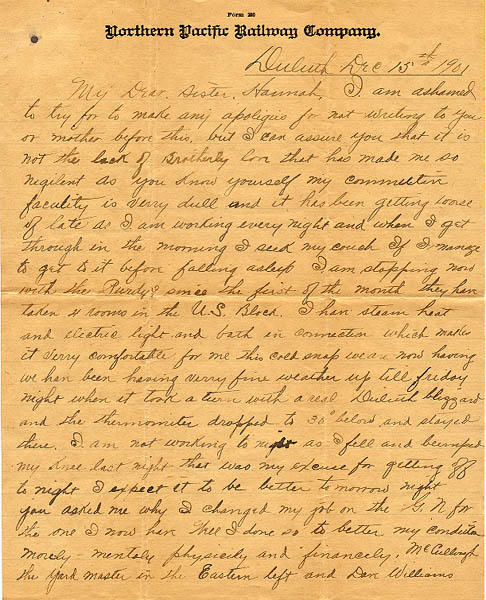 Form 280
Northern Pacific Railway Company.
Duluth Dec 15th 1901
My Dear Sister Hannah, I am ashamed
to try for to make any apologies for not writing to you
or mother before this, but I can assure you that it is
not the lack of Brotherly love that has made me so
negilent as you know yourself my commeetin
faculity is verry dull and it has been getting worse
of late as I am working every night and when I get
through in the morning I seed my couch If I manage
to get to it before falling asleep I am stopping now
with the Purdys since the first of the month they han
taken 4 rooms in the U.S. Block. I han steam heat
and electric light and bath in connection which makes
it verry comfortable for me this cold snap we are now having
we han been having verry fine weather up till friday
night when it took a turn with a real Duluth blizzard
and the thermometer dropped to 30° below and stayed
there. I am not working to night as I fell and bumped
my knee last night that was my excuse for getting off
to night I expect it to be better tomorrow night
you asked me why I changed my job on the G. N for
the one I now han Well I done so to better my condition
moraly - mentaly physicaly and financely. McCullough
the yard master in the Eastern left and Dan Williams